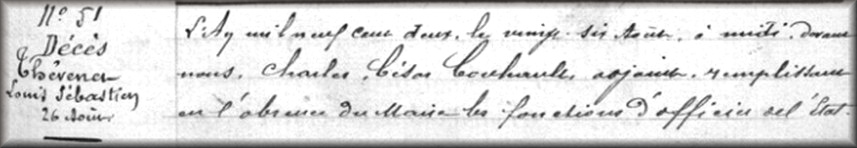 N° 51
Décès
Thévenet
Louis Sébastien
26 Août
L'An mil neuf cent deux, le vingt-six Août, à midi, devant
nous, Charles César adjoint, remplissant
en l'absence du Maire les fonctions d'officier de l'État-